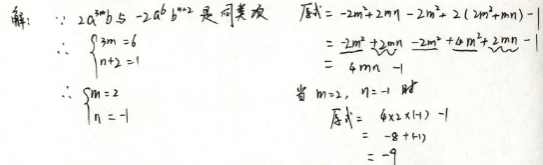 解: ∵ 2a^{3m}b 与 -2a^6 b^{n+2} 是同类项
∴ { 3m=6
n+2=1
∴ { m=2
n=-1
原式= -2m²+2mn-2m²+2(2m²+mn)-1
= -2m²+2mn-2m²+4m²+2mn-1
= 4mn-1
当 m=2, n=-1 时
原式= 4×2×(-1)-1
= -8+(-1)
= -9